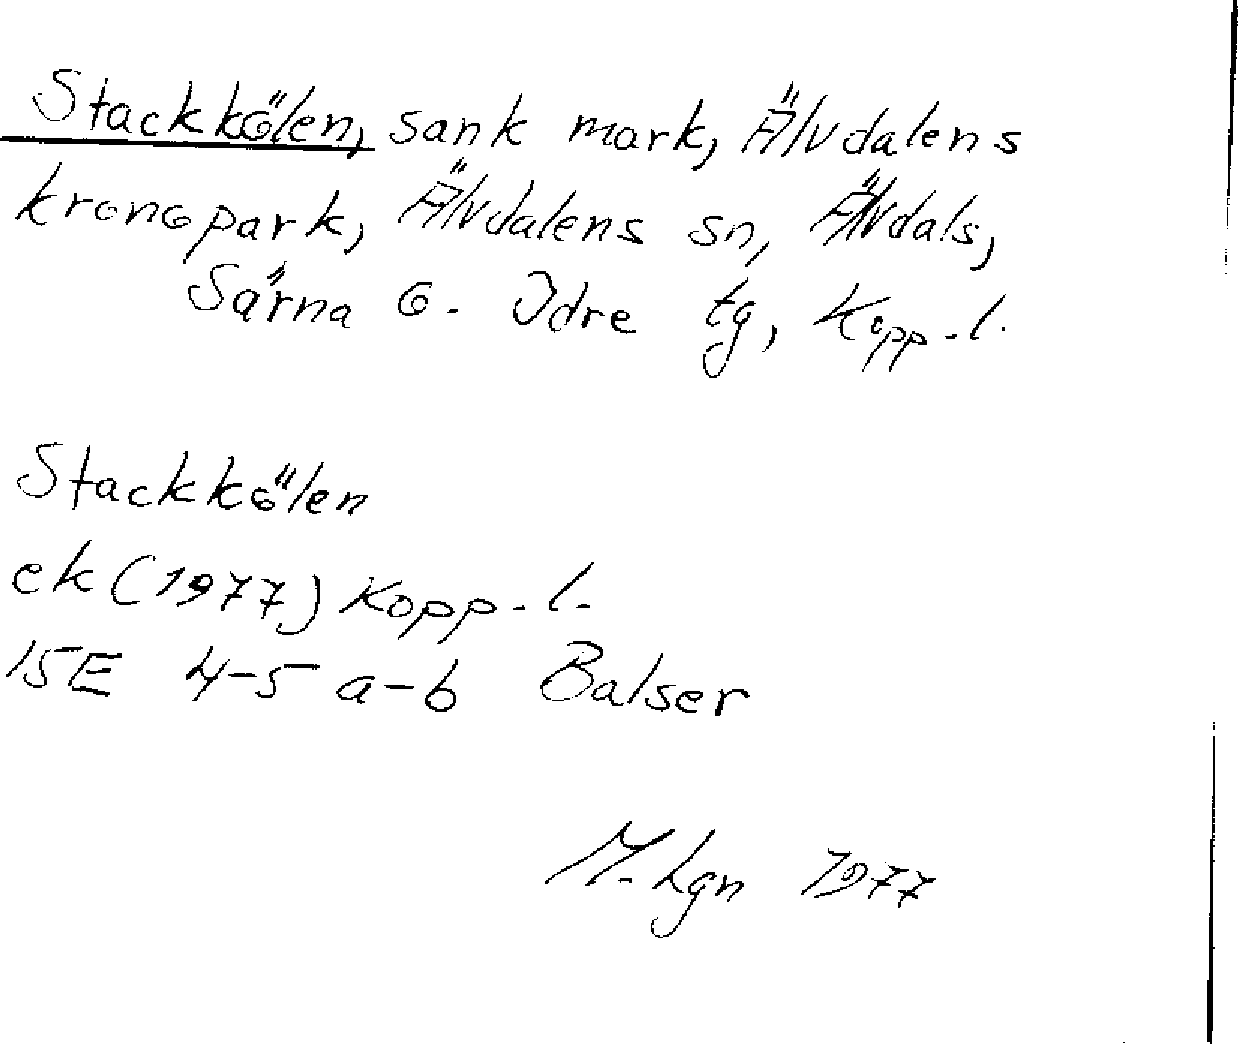 Stackkölen, sank mark, Älvdalens
kronopark, Älvdalens sn, Älvdals,
Särna o. Idre tg, Kopp.l.
Stackkölen
ek (1977) Kopp.l.
15E 4-5 a-b Balser
M. Lgn 1977